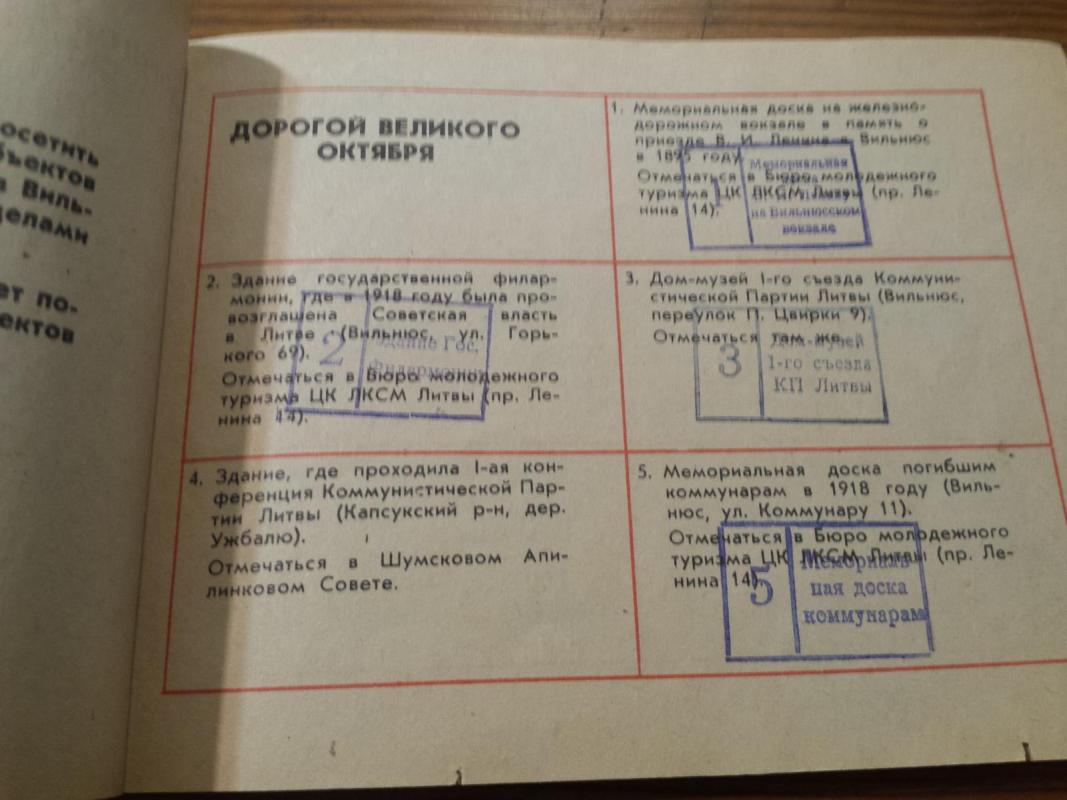 осетить
бъектов
в Виль-
делами
ет по-
ектов
ДОРОГОЙ ВЕЛИКОГО
ОКТЯБРЯ
1. Мемориальная доска на железно-
дорожном вокзале в память о
приезде В. И. Ленина в Вильнюс
в 1895 году
Отмечаться в Бюро молодежного
туризма ЦК ЛКСМ Литвы (пр. Ле-
нина 14).
1
Мемориальная
на Вильнюсском
вокзале
2. Здание государственной филар-
монии, где в 1918 году была про-
возглашена Советская власть
в Литве (Вильнюс, ул. Горь-
кого 69).
Отмечаться в Бюро молодежного
туризма ЦК ЛКСМ Литвы (пр. Ле-
нина 14).
2
Здание Гос.
Филармонии
3. Дом-музей I-го съезда Коммуни-
стической Партии Литвы (Вильнюс,
переулок П. Цвирки 9).
Отмечаться там же.
3
Дом-музей
I-го съезда
КП Литвы
4. Здание, где проходила I-ая кон-
ференция Коммунистической Пар-
тии Литвы (Капсукский р-н, дер.
Ужбалю).
Отмечаться в Шумсковом Апи-
линковом Совете.
5. Мемориальная доска погибшим
коммунарам в 1918 году (Виль-
нюс, ул. Коммунару 11).
Отмечаться в Бюро молодежного
туризма ЦК ЛКСМ Литвы (пр. Ле-
нина 14).
5
Мемориаль-
ная доска
коммунарам